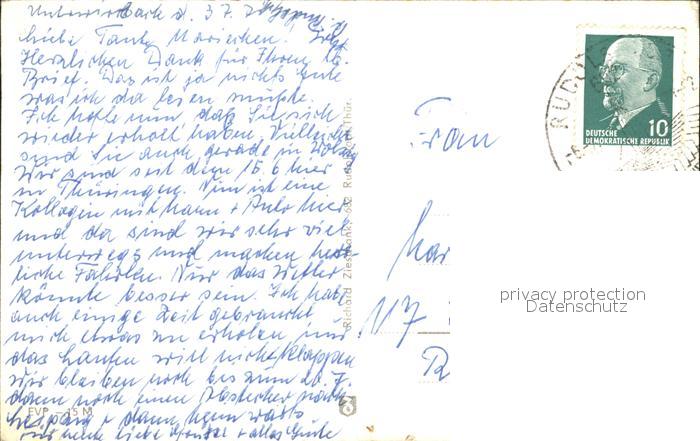 Unterwirbach d. 3.7.
Liebe Tante Mariechen!
Herzlichen Dank für Ihren lb.
Brief. Das ist ja nichts Gute
was ich da lesen mußte.
Ich hoffe nun daß Sie sich
wieder erholt haben. Vielleicht
sind Sie auch gerade in
Wir sind seit dem 16.6 hier
in Thüringen. Nun ist eine
Kollegin mit Mann + Auto hier
und da sind wir sehr viel
unterwegs und machen herr-
liche Fahrten. Nur das Wetter
könnte besser sein. Ich habe
auch einige Zeit gebraucht
mich etwas zu erholen und
das Laufen will nicht klappen
Wir bleiben noch bis zum 20.7.
dann noch einen Abstecher nach
+ dann
liebe + alles Gute
EVP -.15 M
Richard Zieschank, 682 Rudolstadt/Thür.
Frau
Mar
117
R
RUDOLS
DEUTSCHE
DEMOKRATISCHE REPUBLIK
10
privacy protection
Datenschutz